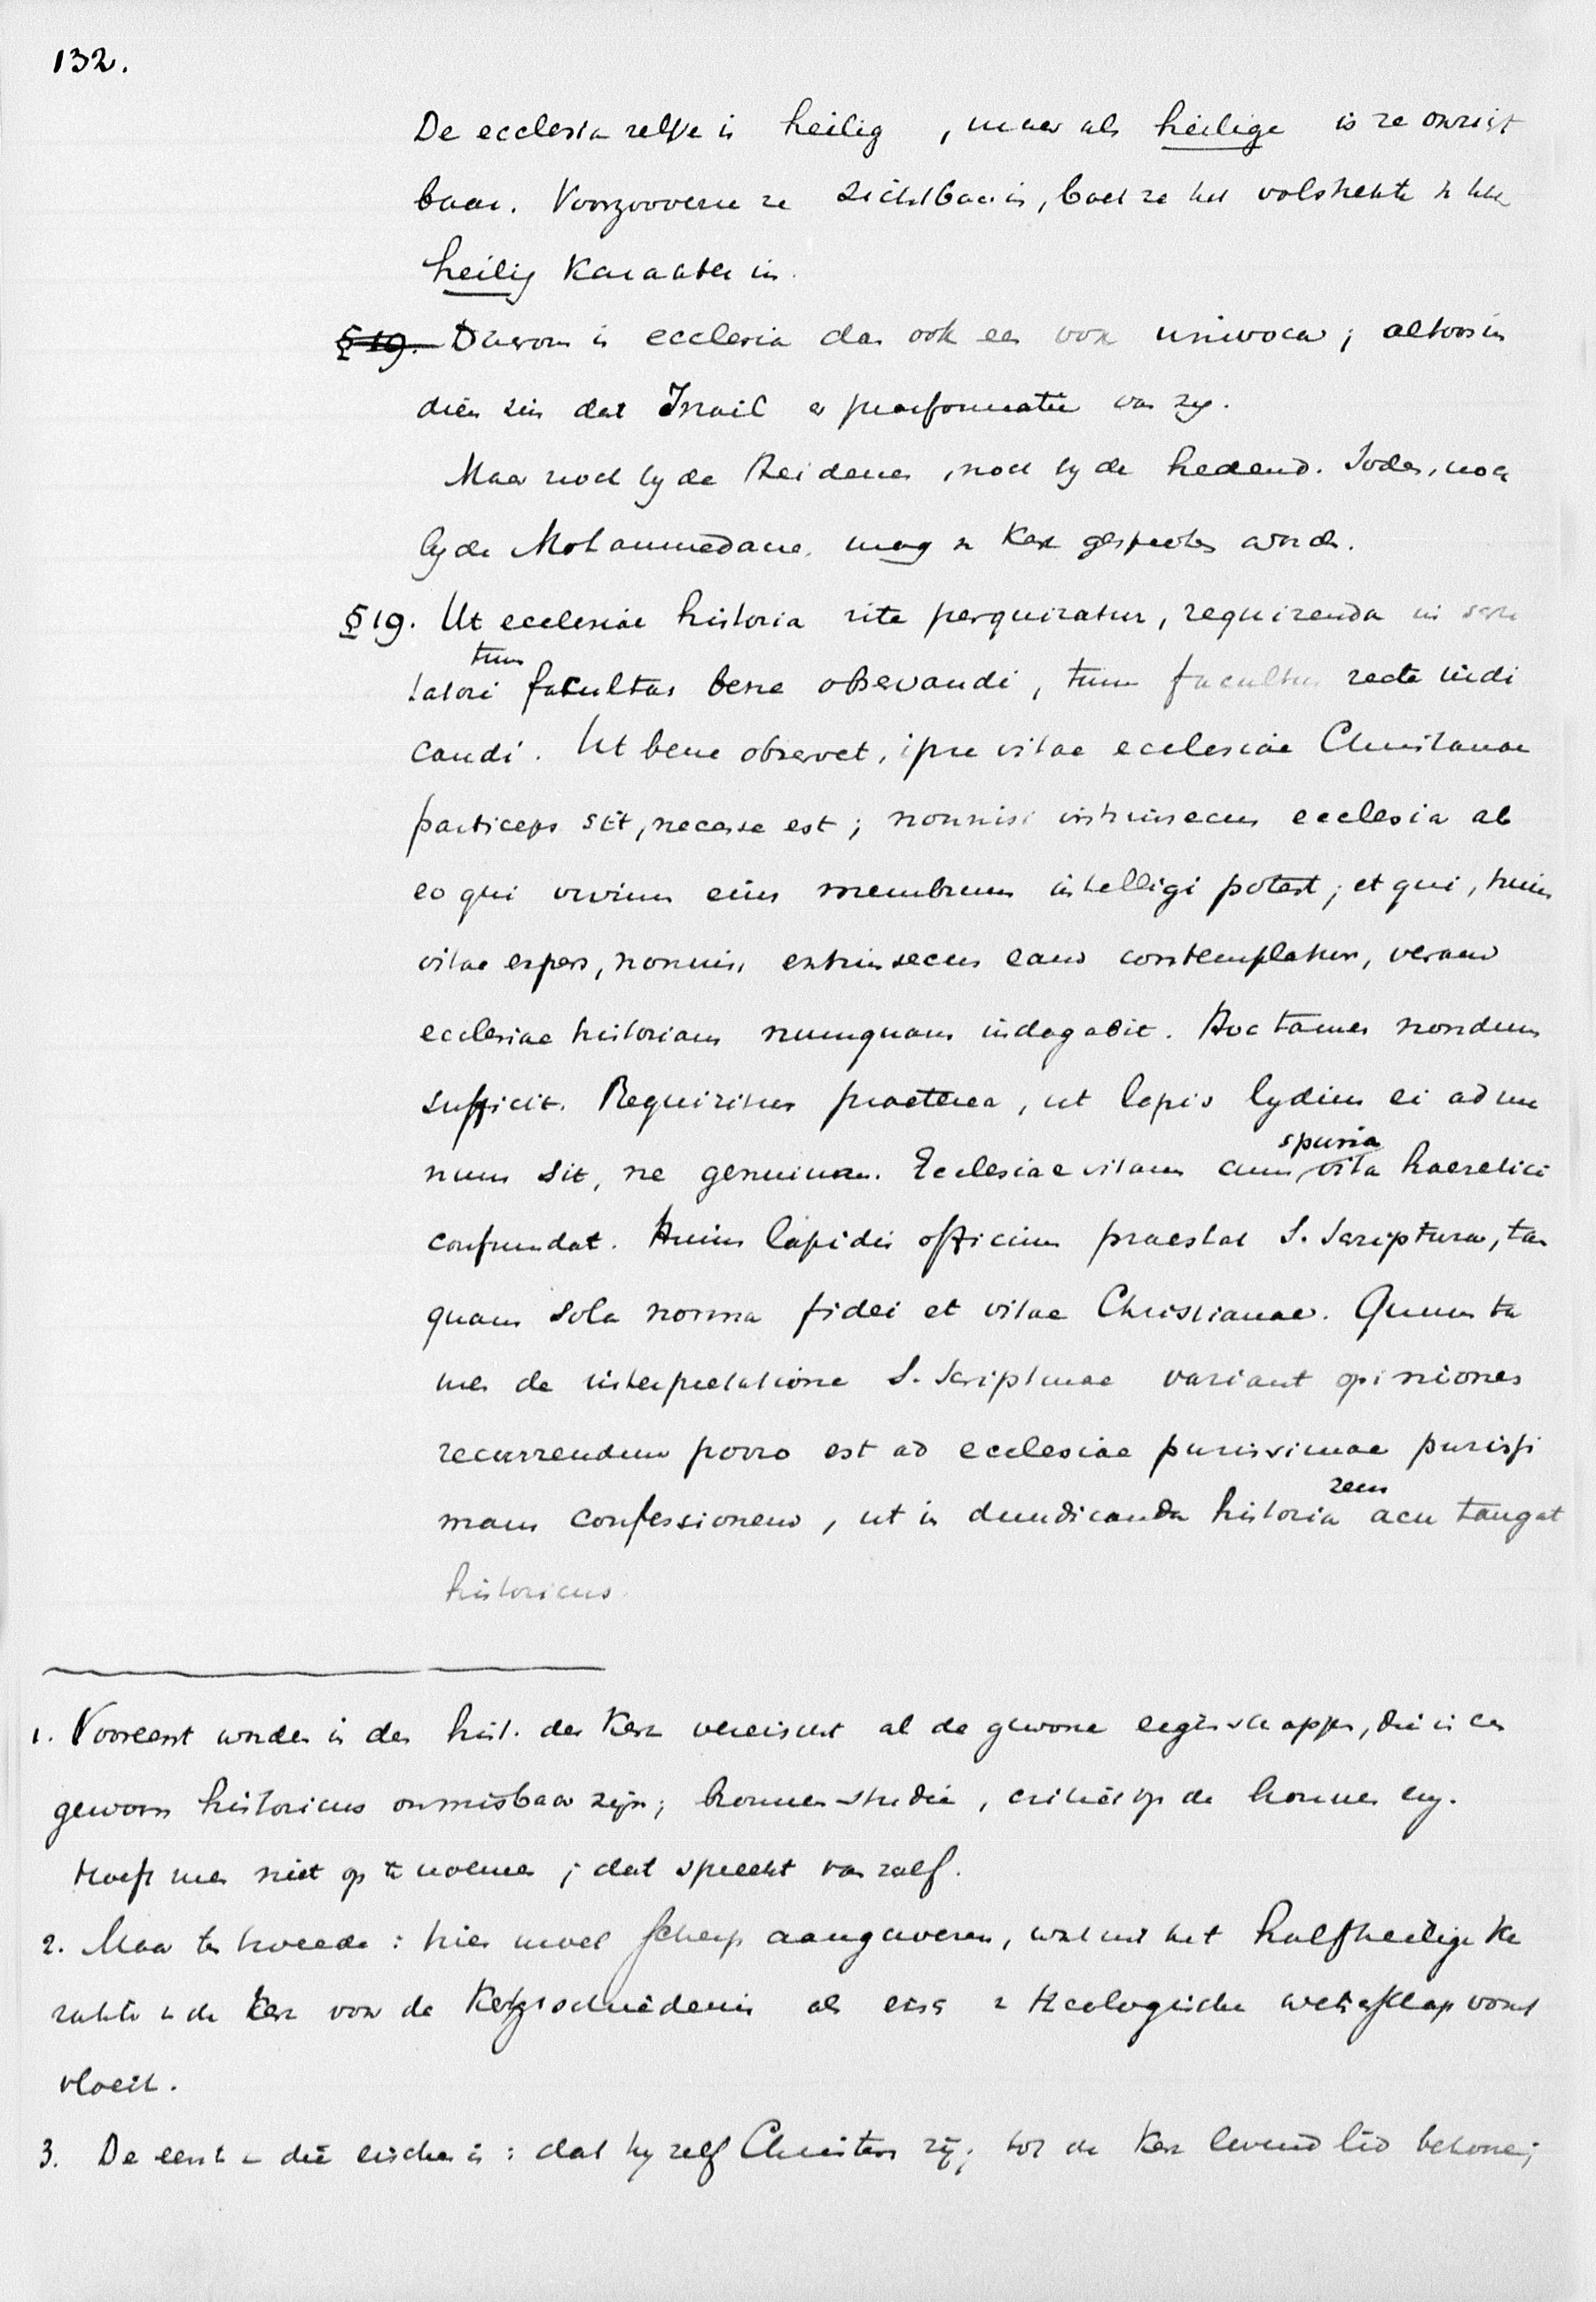 132.
De ecclesia zelve is heilig , maar als heilige is ze onzigt
baar. Voorzooverre ze zichtbaar is, boet ze het volstrekte
heilig karakter in.
§ 19. Daarom is ecclesia dan ook een vox univoca; althans in
dien zin dat Israël er praeformatie van zy.
Maar noch by de Heidenen, noch by de hedend. Joden, noch
by de Mohammedanen mag v Kerk gesproken worden.
§ 19. Ut ecclesiae historia rite perquiratur, requirenda in scru
tum
tatori facultas bene observandi, tum facultas recte iudi
candi. Ut bene observet, ipse vitae ecclesiae Christianae
particeps sit, necesse est; nonnisi intrinsecus ecclesia ab
eo qui vivum eius membrum intelligi potest; et qui, huius
vitae expers, nonnisi extrinsecus eam contemplatur, veram
ecclesiae historiam numquam indagabit. Hoc tamen nondum
sufficit. Requiritur praeterea, ut lapis lydius ei ad ma
spuria
num sit, ne genuinam Ecclesiae vitam cum vita haeretici
confundat. Huius lapidis officium praestat S. Scriptura, tan
quam sola norma fidei et vitae Christianae. Quum ta
men de interpretatione S. Scripturae variant opiniones
recurrendum porro est ad ecclesiae purissimae purissi
rem
mam confessionem, ut in diiudicanda historia acu tangat
historicus
1. Vooreerst worden in den hist. der Kerk vereischt al de gewone eigenschappen, die in een
gewoon historicus onmisbaar zijn; bronnenstudie, critiek op de bronnen enz.
Hoeft men niet op te noemen; dat spreekt van zelf.
2. Maar ten tweede: hier moet scherp aangewezen, wat uit het half heilige ka
rakter v de Kerk voor de Kerkgeschiedenis als eisch v theologische wetenschap voort
vloeit.
3. De eerste v die eischen is: dat hy zelf Christen zij; tot de Kerk levend lid behoore;